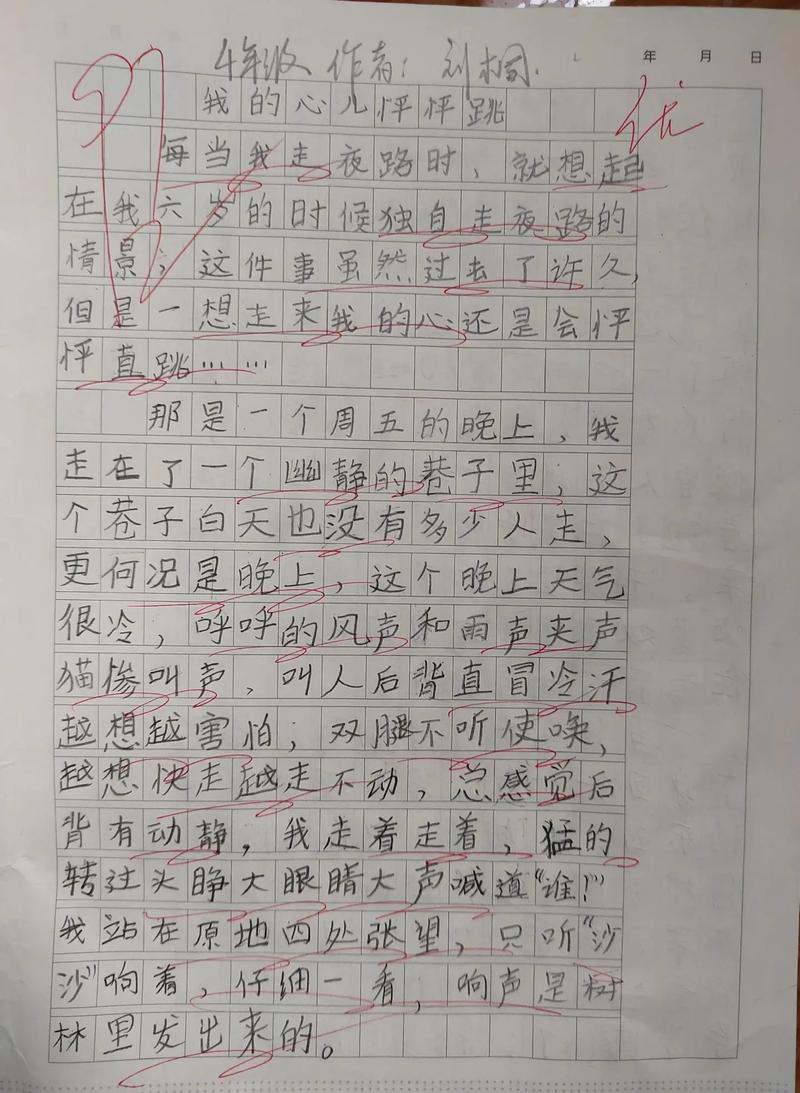 年 月 日
4年级 作者：刘桐.
我的心儿怦怦跳
优
每当我走夜路时，就想起
在我六岁的时候独自走夜路的
情景，这件事虽然过去了许久，
但是一想走来我的心还是会怦
怦直跳……
那是一个周五的晚上，我
走在了一个幽静的巷子里，这
个巷子白天也没有多少人走，
更何况是晚上，这个晚上天气
很冷，呼呼的风声和雨声夹声
猫惨叫声，叫人后背直冒冷汗
越想越害怕，双腿不听使唤，
越想快走越走不动，总感觉后
背有动静，我走着走着，猛的
转过头睁大眼睛大声喊道“谁！”
我站在原地四处张望，只听“沙
沙”响着，仔细一看，响声是树
林里发出来的。